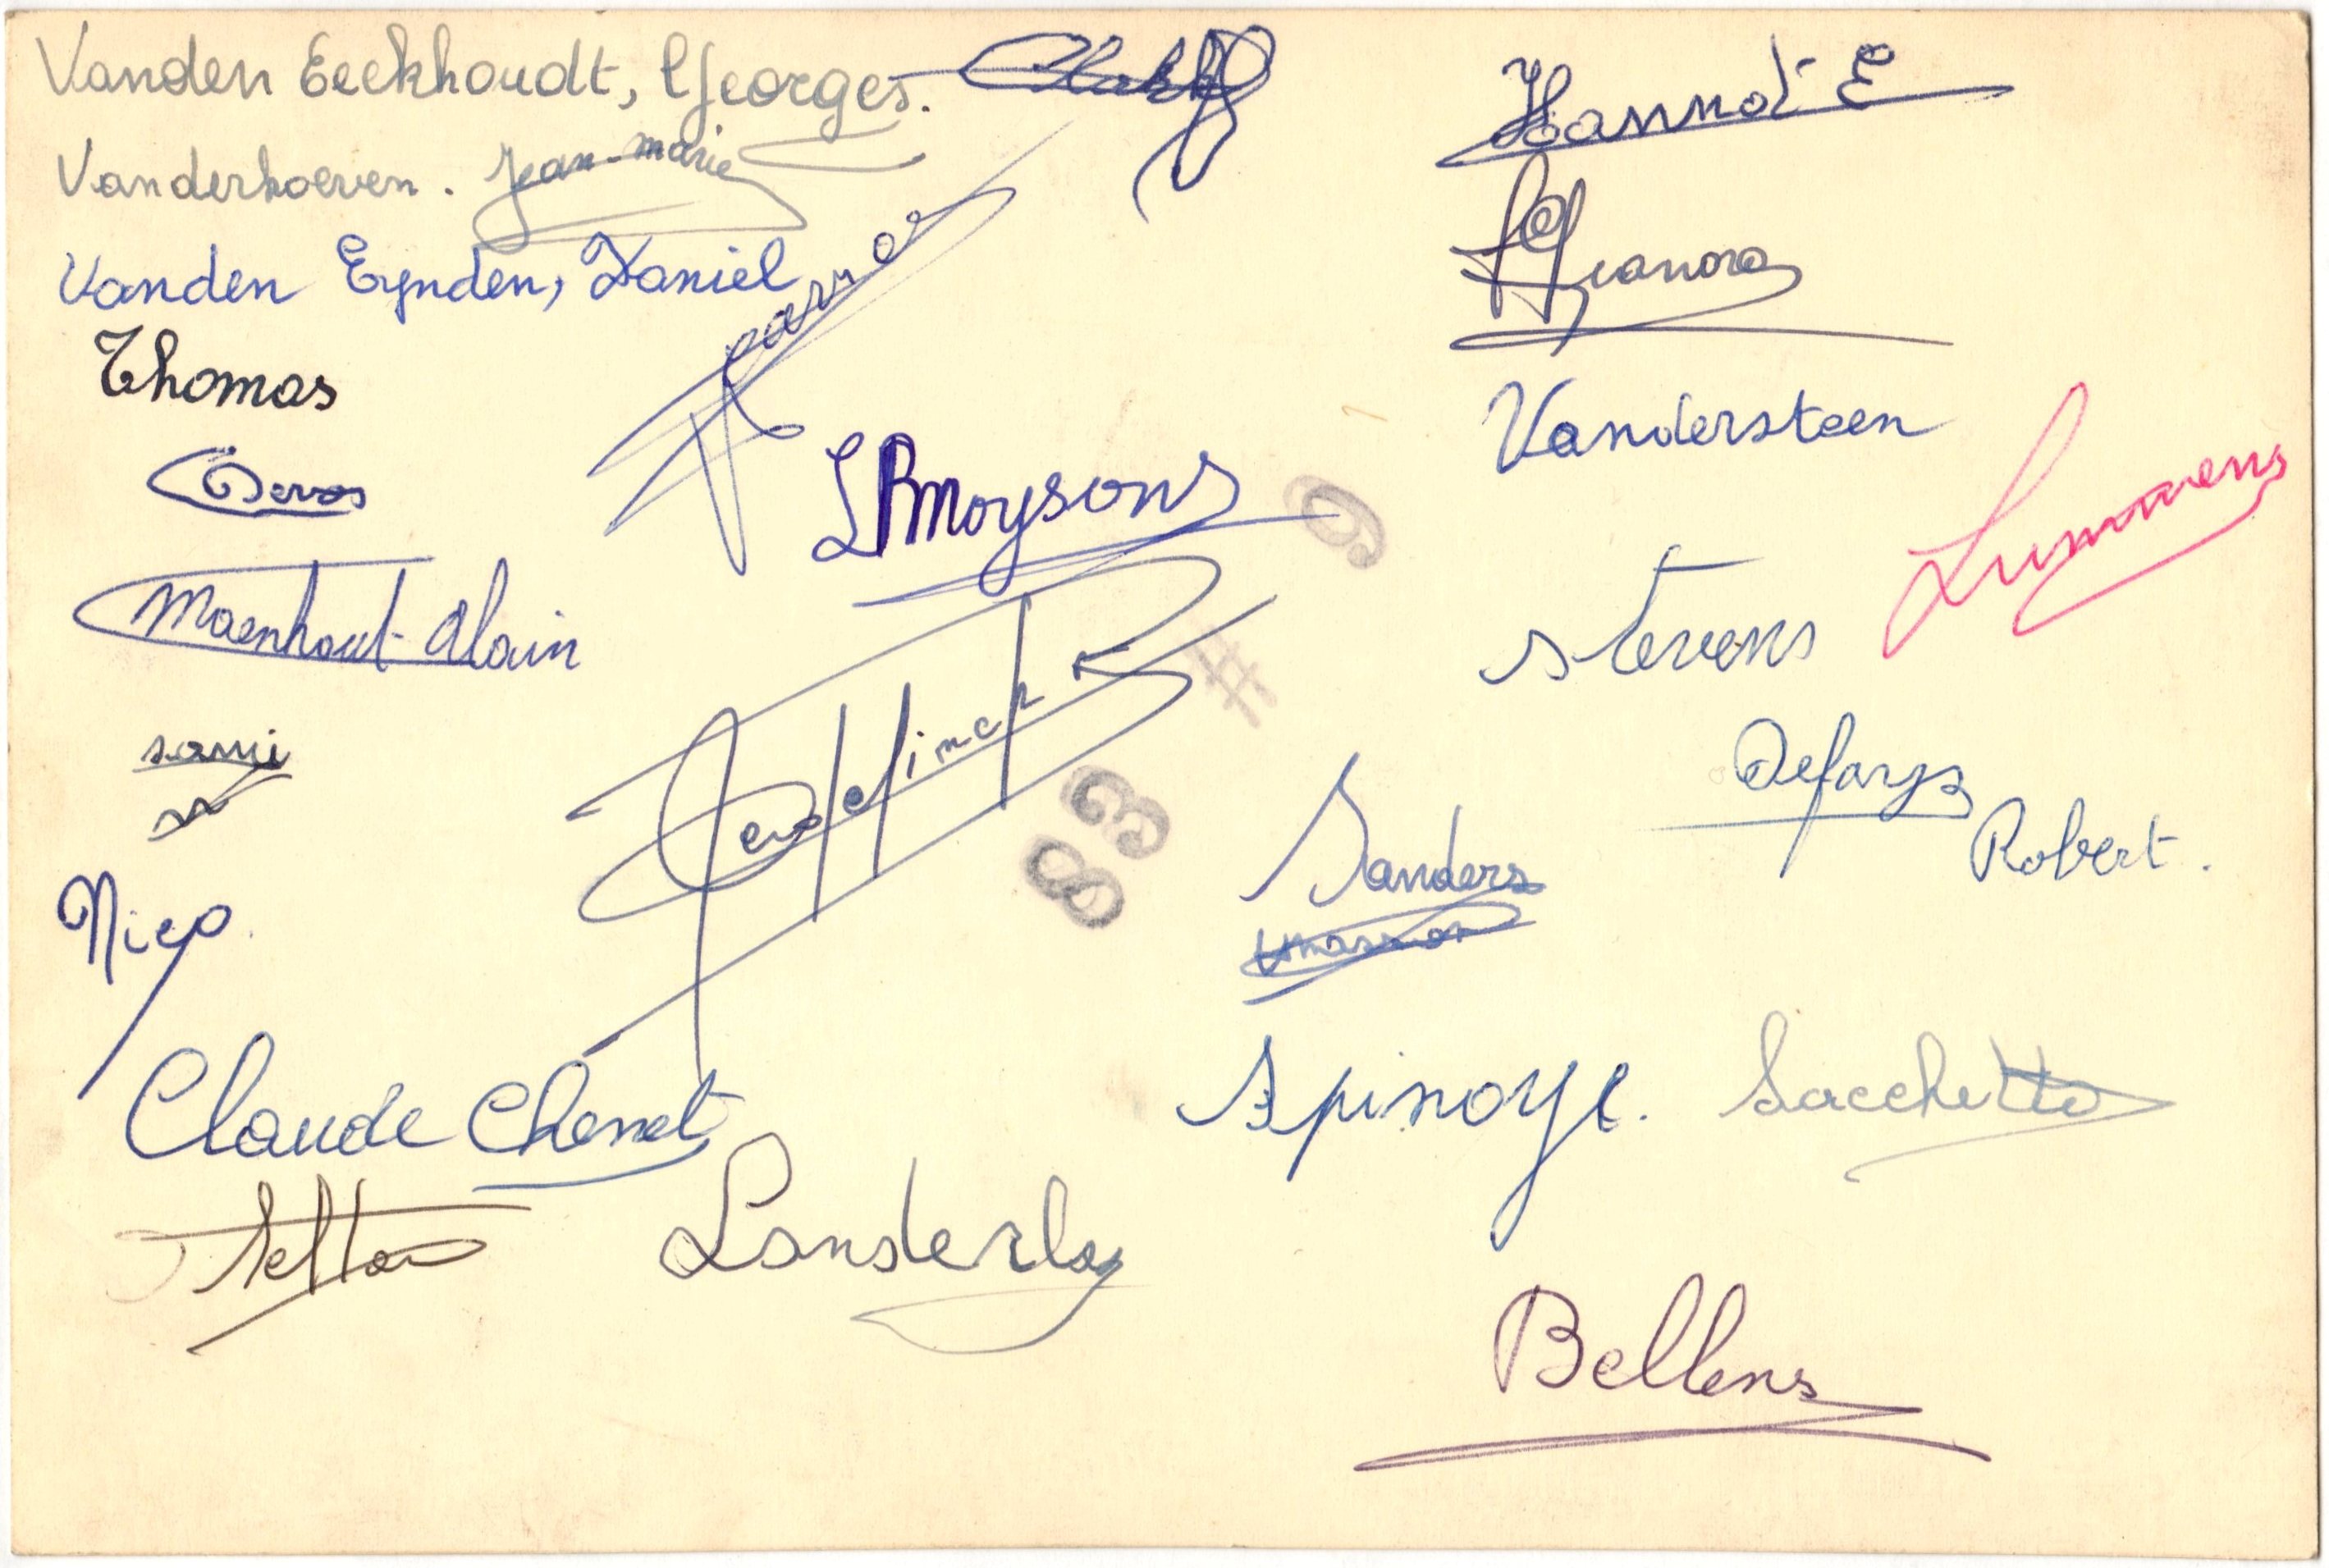 Vanden Eeckhoudt, Georges.
Vanderhoeven. Jean-marie
Vanden Eynden, Daniel
Thomas
Devos
Maenhout Alain
sami
Nico
Claude Chenet
Landerloy
Moysons
Hannot E
Vandersteen
Lummens
Stevens
Defays
Robert.
Sanders
Spinoye.
Sacchetto
Bellens
9
#
83